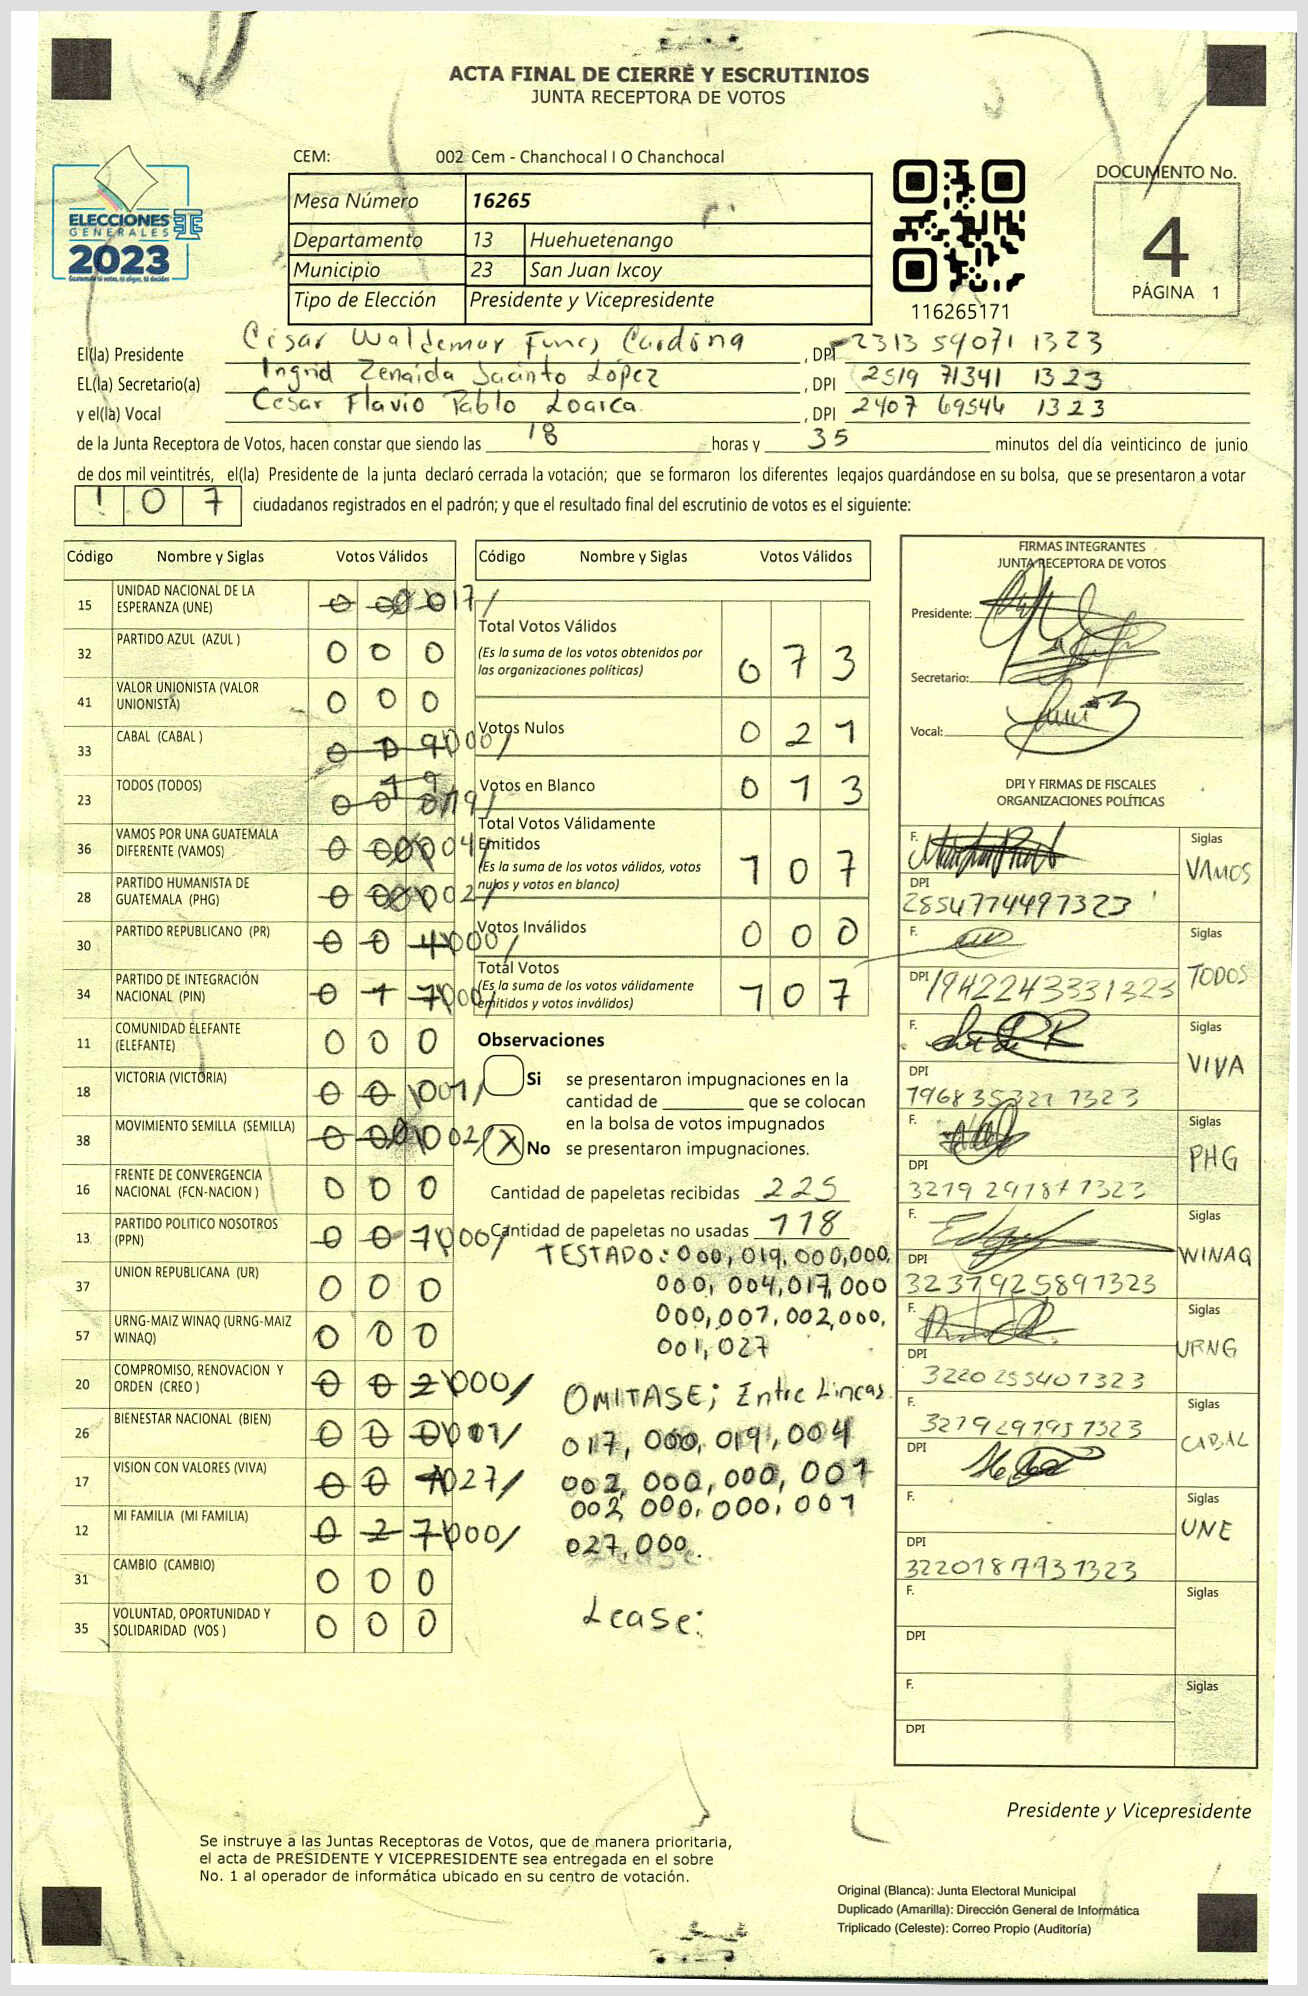 ACTA FINAL DE CIERRE Y ESCRUTINIOS
JUNTA RECEPTORA DE VOTOS
CEM: 002 Cem - Chanchocal I O Chanchocal
ELECCIONES
GENERALES
2023
Mesa Número 16265
Departamento 13 Huehuetenango
Municipio 23 San Juan Ixcoy
Tipo de Elección Presidente y Vicepresidente
116265171
DOCUMENTO No.
4
PÁGINA 1
El(la) Presidente César Waldemar Funes Cardona, DPI 2313 59071 1323
EL(la) Secretario(a) Ingrid Zenaida Jacinto López, DPI 2519 71341 1323
y el(la) Vocal Cesar Flavio Pablo Loarca, DPI 2407 69546 1323
de la Junta Receptora de Votos, hacen constar que siendo las 18 horas y 35 minutos del día veinticinco de junio
de dos mil veintitrés, el(la) Presidente de la junta declaró cerrada la votación; que se formaron los diferentes legajos quardándose en su bolsa, que se presentaron a votar
107 ciudadanos registrados en el padrón; y que el resultado final del escrutinio de votos es el siguiente:
Código Nombre y Siglas Votos Válidos
15 UNIDAD NACIONAL DE LA ESPERANZA (UNE) 017/
32 PARTIDO AZUL (AZUL ) 0 0 0
41 VALOR UNIONISTA (VALOR UNIONISTA) 0 0 0
33 CABAL (CABAL ) 0 1 9 000/
23 TODOS (TODOS) 019/
36 VAMOS POR UNA GUATEMALA DIFERENTE (VAMOS) 004/
28 PARTIDO HUMANISTA DE GUATEMALA (PHG) 002/
30 PARTIDO REPUBLICANO (PR) 0 0 4 000/
34 PARTIDO DE INTEGRACIÓN NACIONAL (PIN) 0 1 7 000/
11 COMUNIDAD ELEFANTE (ELEFANTE) 0 0 0
18 VICTORIA (VICTORIA) 0 0 001/
38 MOVIMIENTO SEMILLA (SEMILLA) 002/
16 FRENTE DE CONVERGENCIA NACIONAL (FCN-NACION ) 0 0 0
13 PARTIDO POLITICO NOSOTROS (PPN) 0 0 1 000/
37 UNION REPUBLICANA (UR) 0 0 0
57 URNG-MAIZ WINAQ (URNG-MAIZ WINAQ) 0 0 0
20 COMPROMISO, RENOVACION Y ORDEN (CREO ) 0 0 2 000/
26 BIENESTAR NACIONAL (BIEN) 0 0 0 001/
17 VISION CON VALORES (VIVA) 0 0 1 027/
12 MI FAMILIA (MI FAMILIA) 0 2 7 000/
31 CAMBIO (CAMBIO) 0 0 0
35 VOLUNTAD, OPORTUNIDAD Y SOLIDARIDAD (VOS ) 0 0 0
Código Nombre y Siglas Votos Válidos
Total Votos Válidos 0 7 3
(Es la suma de los votos obtenidos por
las organizaciones políticas)
Votos Nulos 0 2 1
Votos en Blanco 0 1 3
Total Votos Válidamente
Emitidos 1 0 7
(Es la suma de los votos válidos, votos
nulos y votos en blanco)
Votos Inválidos 0 0 0
Total Votos 1 0 7
(Es la suma de los votos válidamente
emitidos y votos inválidos)
Observaciones
Si se presentaron impugnaciones en la
cantidad de ________ que se colocan
en la bolsa de votos impugnados
X No se presentaron impugnaciones.
Cantidad de papeletas recibidas 225
Cantidad de papeletas no usadas 118
TESTADO: 000, 019, 000, 000,
000, 004, 017, 000
000, 001, 002, 000,
001, 027
OMITASE; Entre Lineas
017, 000, 019, 004
002, 000, 000, 001
002 000, 000, 001
027, 000.
Lease:
FIRMAS INTEGRANTES
JUNTA RECEPTORA DE VOTOS
Presidente:
Secretario:
Vocal:
DPI Y FIRMAS DE FISCALES
ORGANIZACIONES POLÍTICAS
F. Siglas VAMOS
DPI 2854774491323
F. Siglas TODOS
DPI 1942243331323
F. Siglas VIVA
DPI 1968353211323
F. Siglas PHG
DPI 3219291871323
F. Siglas WINAQ
DPI 3237925891323
F. Siglas URNG
DPI 3220255401323
F. 3219291951323 Siglas CABAL
DPI
F. Siglas UNE
DPI 3220187931323
F. Siglas
DPI
F. Siglas
DPI
Presidente y Vicepresidente
Se instruye a las Juntas Receptoras de Votos, que de manera prioritaria,
el acta de PRESIDENTE Y VICEPRESIDENTE sea entregada en el sobre
No. 1 al operador de informática ubicado en su centro de votación.
Original (Blanca): Junta Electoral Municipal
Duplicado (Amarilla): Dirección General de Informática
Triplicado (Celeste): Correo Propio (Auditoría)